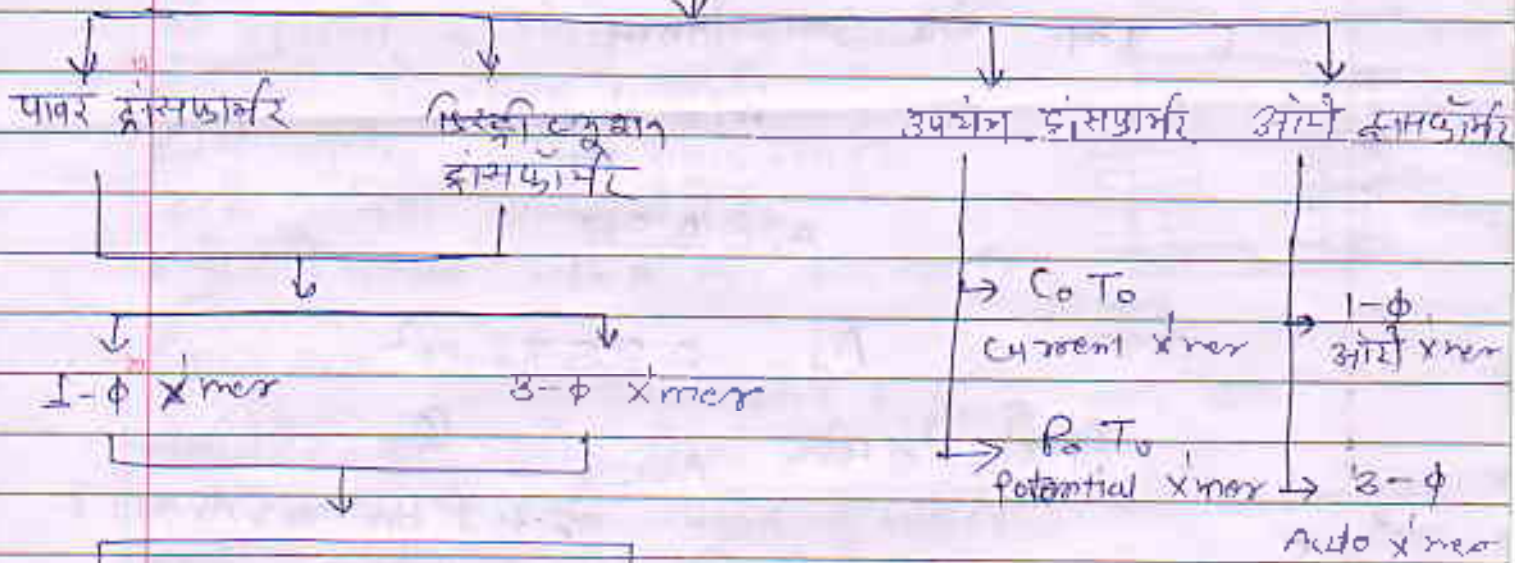 पावर ट्रांसफार्मर
डिस्ट्रीब्यूशन
ट्रांसफॉर्मर
उपयंत्र ट्रांसफार्मर
ऑटो ट्रांसफॉर्मर
1-ϕ x'mer
3-ϕ x'mer
C. T.
Current x'mer
P. T.
Potential x'mer
1-ϕ
ऑटो x'mer
3-ϕ
Auto x'mer